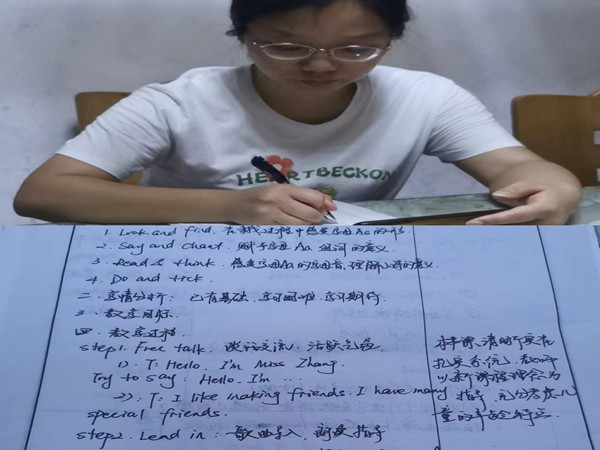 HEARTBECKON
1. Look and find. 在找过程中感受字母Aa的外形.
2. Say and chant. 赋予字母 Aa 组词的意义
3. Read & think. 感受字母Aa的字母音,理解小诗的意义.
4. Do and tick.
二. 学情分析: 已有基础, 学习困难, 学习期待
三. 教学目标
四. 教学过程
Step1. Free talk. 谈话交流, 活跃气氛
1). T: Hello. I'm Miss Zhang.
Try to say: Hello. I'm ...
2). T: I like making friends. I have many
special friends.
Step2. Lead in: 歌曲导入,
本节课,清晰实在
扎实系统, 教师
以新课程理念为
指导, 充分考虑儿
童的年龄特点.